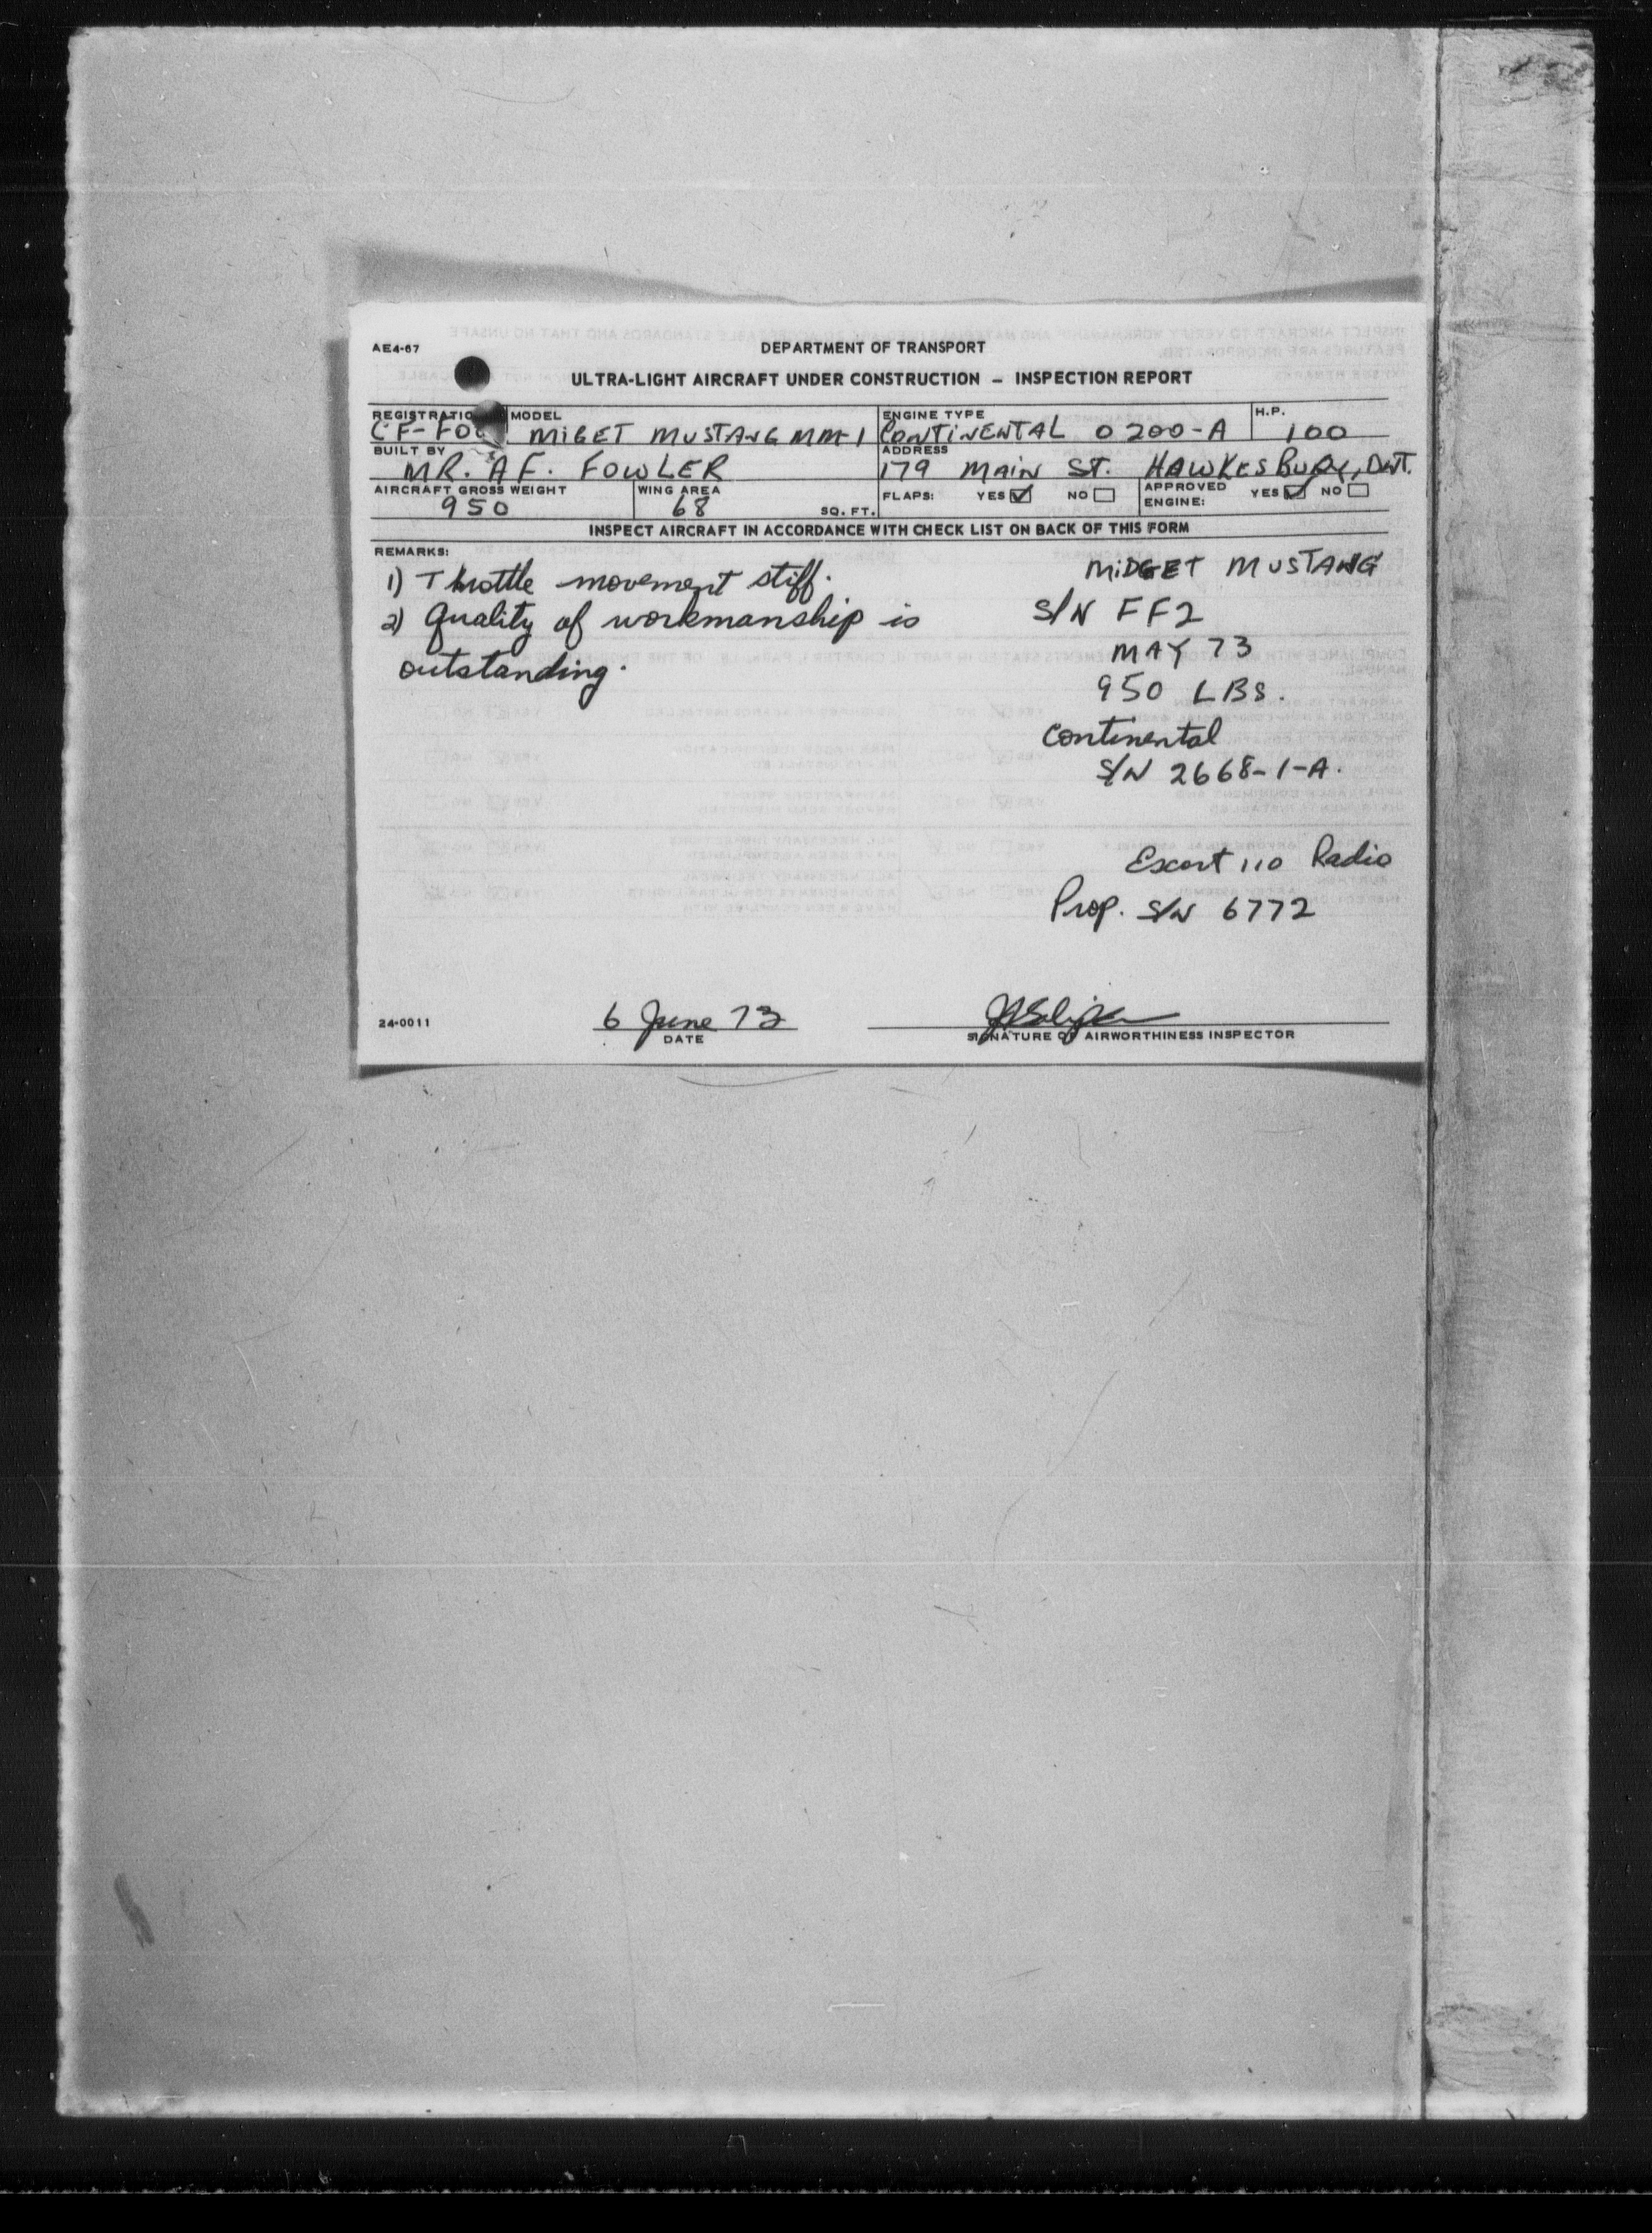 AE4-67
DEPARTMENT OF TRANSPORT
ULTRA-LIGHT AIRCRAFT UNDER CONSTRUCTION – INSPECTION REPORT
MODEL ENGINE TYPE H.P.
MiGET MUSTANG MM-1 CONTINENTAL O 200-A 100
BUILT BY ADDRESS
MR. AF. FOWLER 179 MAIN ST. HAWKESBURY, ONT.
AIRCRAFT GROSS WEIGHT WING AREA FLAPS: YES NO APPROVED ENGINE: YES NO
950 68 SQ. FT.
INSPECT AIRCRAFT IN ACCORDANCE WITH CHECK LIST ON BACK OF THIS FORM
REMARKS:
1) Throttle movement stiff.
2) Quality of workmanship is
outstanding.
MiDGET MUSTANG
S/N FF2
MAY 73
950 LBS.
Continental
S/N 2668-1-A.
Escort 110 Radio
Prop. S/N 6772
24-0011
6 June 73
DATE
SIGNATURE OF AIRWORTHINESS INSPECTOR